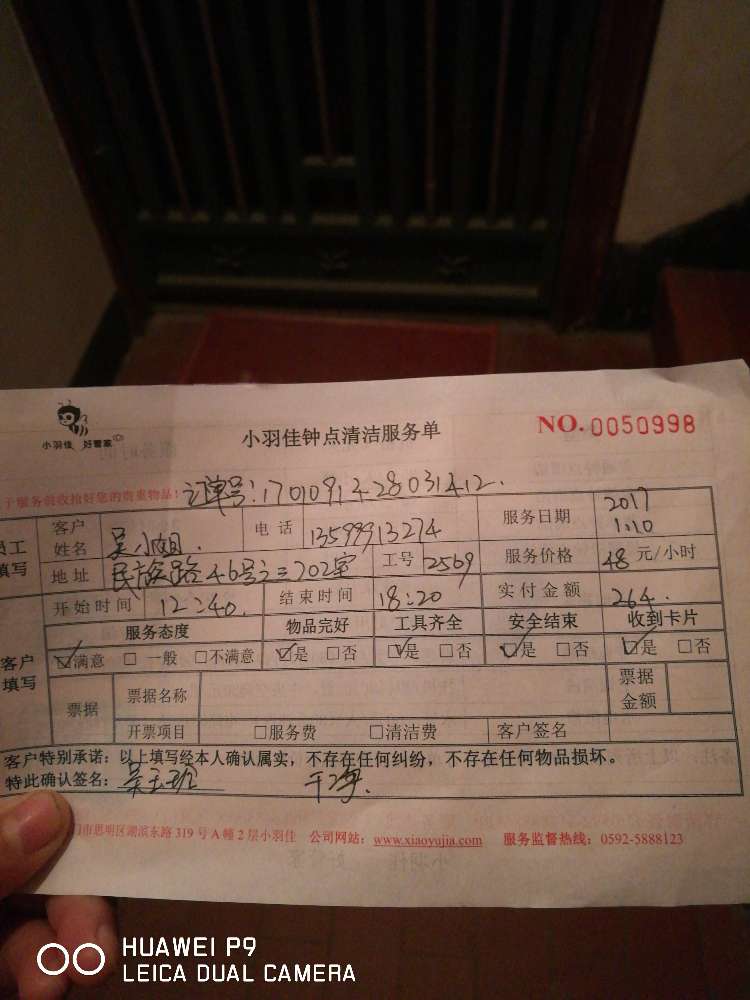 小羽佳 好管家
小羽佳钟点清洁服务单
NO. 0050998
于服务前收拾好您的贵重物品!
订单号:17010913428031412.
员工填写 客户姓名 吴小姐. 电话 13599913274 服务日期 2017 1.10
地址 民族路46号之三702室 工号 2569 服务价格 48 元/小时
开始时间 12:40. 结束时间 18:20 实付金额 264.
客户填写 服务态度 物品完好 工具齐全 安全结束 收到卡片
☑满意 □一般 □不满意 ☑是 □否 ☑是 □否 ☑是 □否 ☑是 □否
票据 票据名称 票据金额
开票项目 □服务费 □清洁费 客户签名
客户特别承诺:以上填写经本人确认属实,不存在任何纠纷,不存在任何物品损坏。
特此确认签名: 干净.
门市思明区湖滨东路 319 号 A 幢 2 层小羽佳 公司网站:www.xiaoyujia.com 服务监督热线:0592-5888123
HUAWEI P9
LEICA DUAL CAMERA